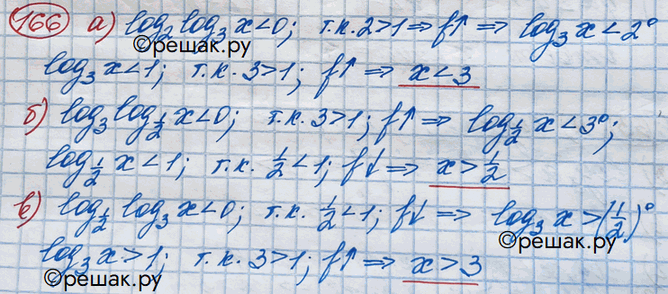 166 а) log₂ log₃ x < 0; т.к. 2 > 1 ⇒ f↑ ⇒ log₃ x < 2⁰
©решак.ру
log₃ x < 1; т.к. 3 > 1; f↑ ⇒ x < 3
б) log₃ log_{1/2} x < 0; т.к. 3 > 1; f↑ ⇒ log_{1/2} x < 3⁰;
log_{1/2} x < 1; т.к. 1/2 < 1; f↓ ⇒ x > 1/2
в) log_{1/2} log₃ x < 0; т.к. 1/2 < 1; f↓ ⇒ log₃ x > (1/2)⁰
©решак.ру
log₃ x > 1; т.к. 3 > 1; f↑ ⇒ x > 3
©решак.ру